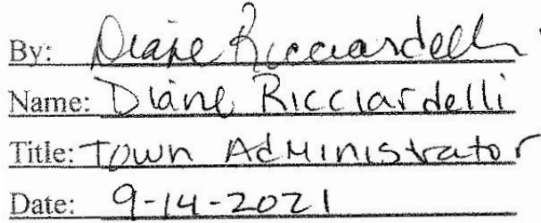 By: Diane Ricciardelli
Name: Diane Ricciardelli
Title: Town Administrator
Date: 9-14-2021